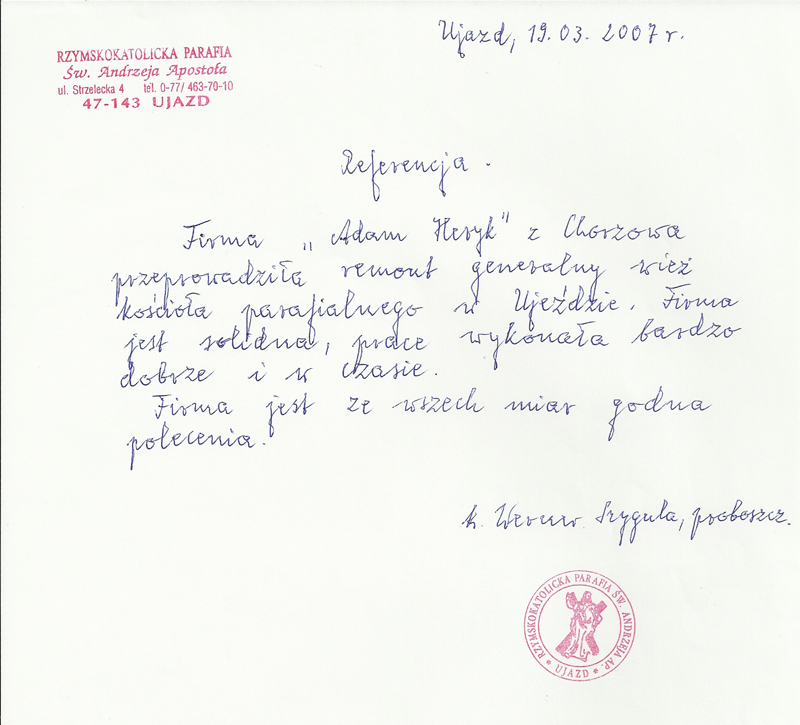 Ujazd, 19.03.2007 r.
RZYMSKOKATOLICKA PARAFIA
Św. Andrzeja Apostoła
ul. Strzelecka 4 tel. 0-77/ 463-70-10
47-143 UJAZD
Referencja.
Firma „Adam Heryk" z Chorzowa
przeprowadziła remont generalny wież
kościoła parafialnego w Ujeździe. Firma
jest solidna, prace wykonała bardzo
dobrze i w czasie.
Firma jest ze wszech miar godna
polecenia.
k. Werner Szyguła, proboszcz.
RZYMSKOKATOLICKA PARAFIA ŚW. ANDRZEJA AP.
* UJAZD *